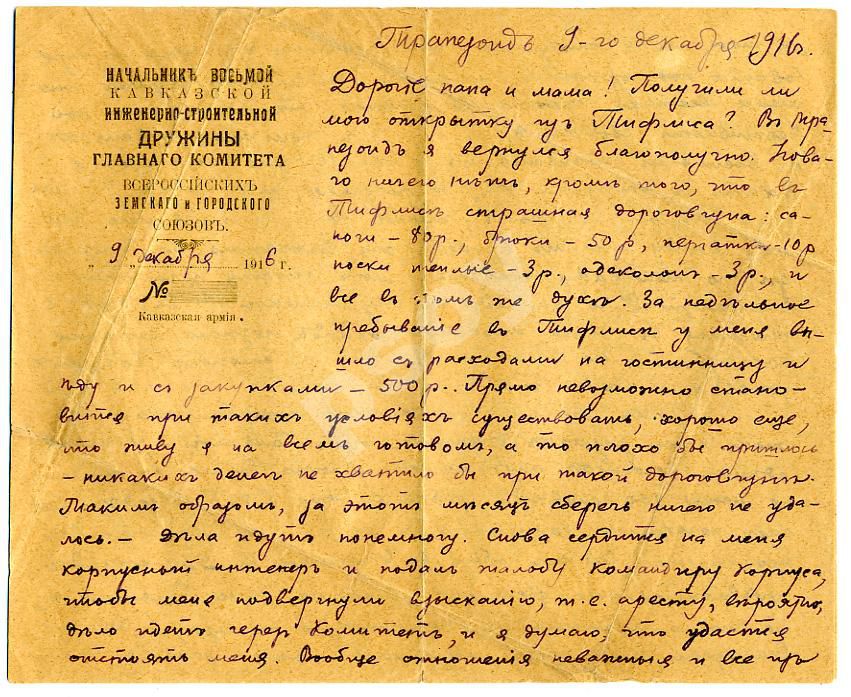 НАЧАЛЬНИКЪ ВОСЬМОЙ
КАВКАЗСКОЙ
ИНЖЕНЕРНО-СТРОИТЕЛЬНОЙ
ДРУЖИНЫ
ГЛАВНАГО КОМИТЕТА
ВСЕРОССІЙСКИХЪ
ЗЕМСКАГО И ГОРОДСКОГО
СОЮЗОВЪ.
„ 9 „ декабря 1916 г.
№
Кавказская армія.
Трапезондъ 9-го декабря 1916 г.
Дорогіе папа и мама! Получили ли
мою открытку изъ Тифлиса? Въ Тра-
пезондъ я вернулся благополучно. Нова-
го ничего нѣтъ, кромѣ того, что въ
Тифлисѣ страшная дороговизна: са-
поги – 80 р., брюки – 50 р, перчатки – 10 р
носки теплые – 3 р., одеколонъ – 3 р., и
все въ томъ же духѣ. За недѣльное
пребываніе въ Тифлисѣ у меня вы-
шло съ расходами на гостинницу и
ѣду и съ закупками – 500 р.. Прямо невозможно стано-
вится при такихъ условіяхъ существовать, хорошо еще,
что живу я на всемъ готовомъ, а то плохо бы пришлось
– никакихъ денегъ не хватило бы при такой дороговизнѣ.
Такимъ образомъ, за этотъ мѣсяцъ сберечь ничего не уда-
лось. – Дѣла идутъ понемногу. Снова сердится на меня
корпусный инженеръ и подалъ жалобу Командиру Корпуса,
чтобы меня подвергнули взысканію, т.е. аресту, вѣроятно,
дѣло идетъ черезъ Комитетъ, и я думаю, что удастся
отстоять меня. Вообще отношенія неважныя и все